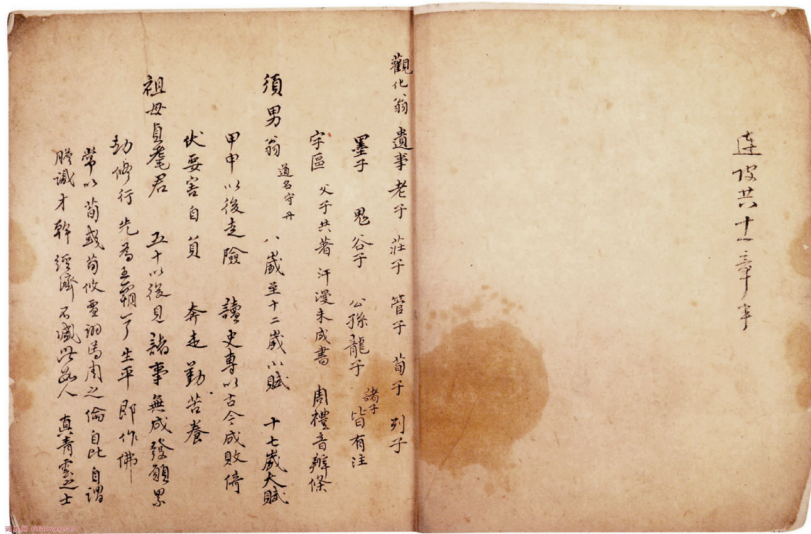 連皮共十一章半
觀化翁遺事老子 莊子 管子 荀子 列子
墨子 鬼谷子 公孫龍子 諸子皆有注
字區 父子共著 汗漫未成書 周禮音辨條
須男翁 道名守丹 八歲至十二歲以賦 十七歲大賦
甲申以後走險 讀史專以古今成敗倚
伏要害自負 奔走勤苦養
祖母貞耄君 五十以後見諸事無成發願累
劫修行 先為王霸了生平 即作佛
常以荀彧荀攸虞翊馬周之倫自比自謂
膽識才幹 經濟 不減此函人 真青雲之士